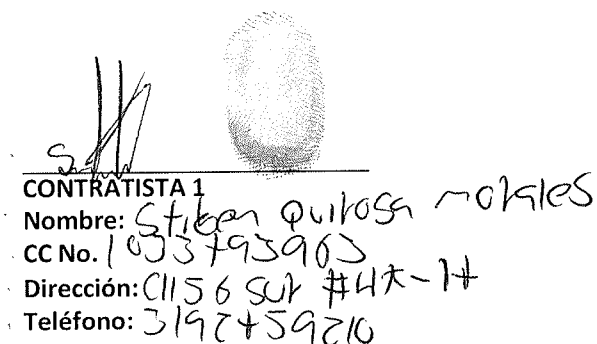 CONTRATISTA 1
Nombre: Stiben Quiroga morales
CC No. 1033793903
Dirección: Cll 56 sur #4A-17
Teléfono: 3192759210